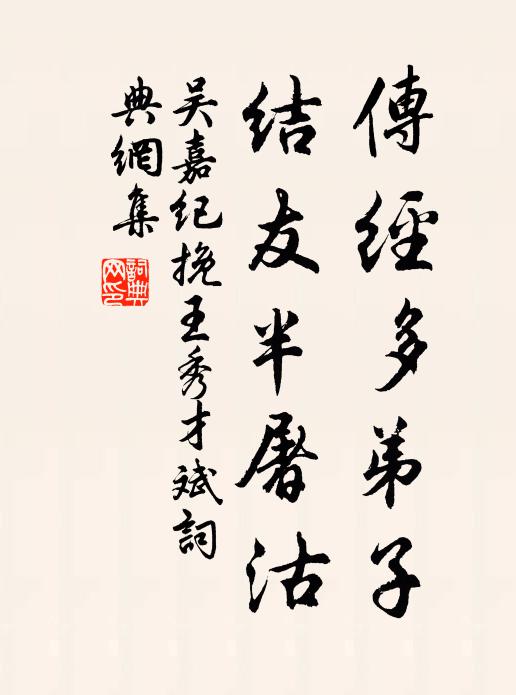 傳經多弟子
結友半屠沽
吴嘉纪挽王秀才斌詞
典網集
詞典
网印